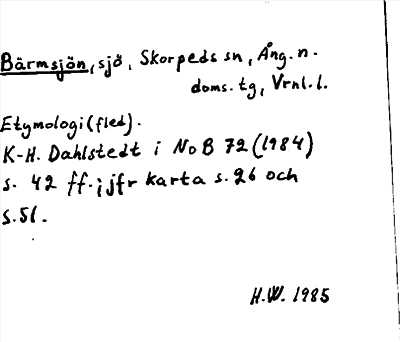 Bärmsjön, sjö, Skorpeds sn, Ång. n.
doms. tg, Vrnl. l.
Etymologi (fled).
K-H. Dahlstedt i NoB 72 (1984)
s. 42 ff.; jfr karta s. 26 och
s. 51.
H.W. 1985